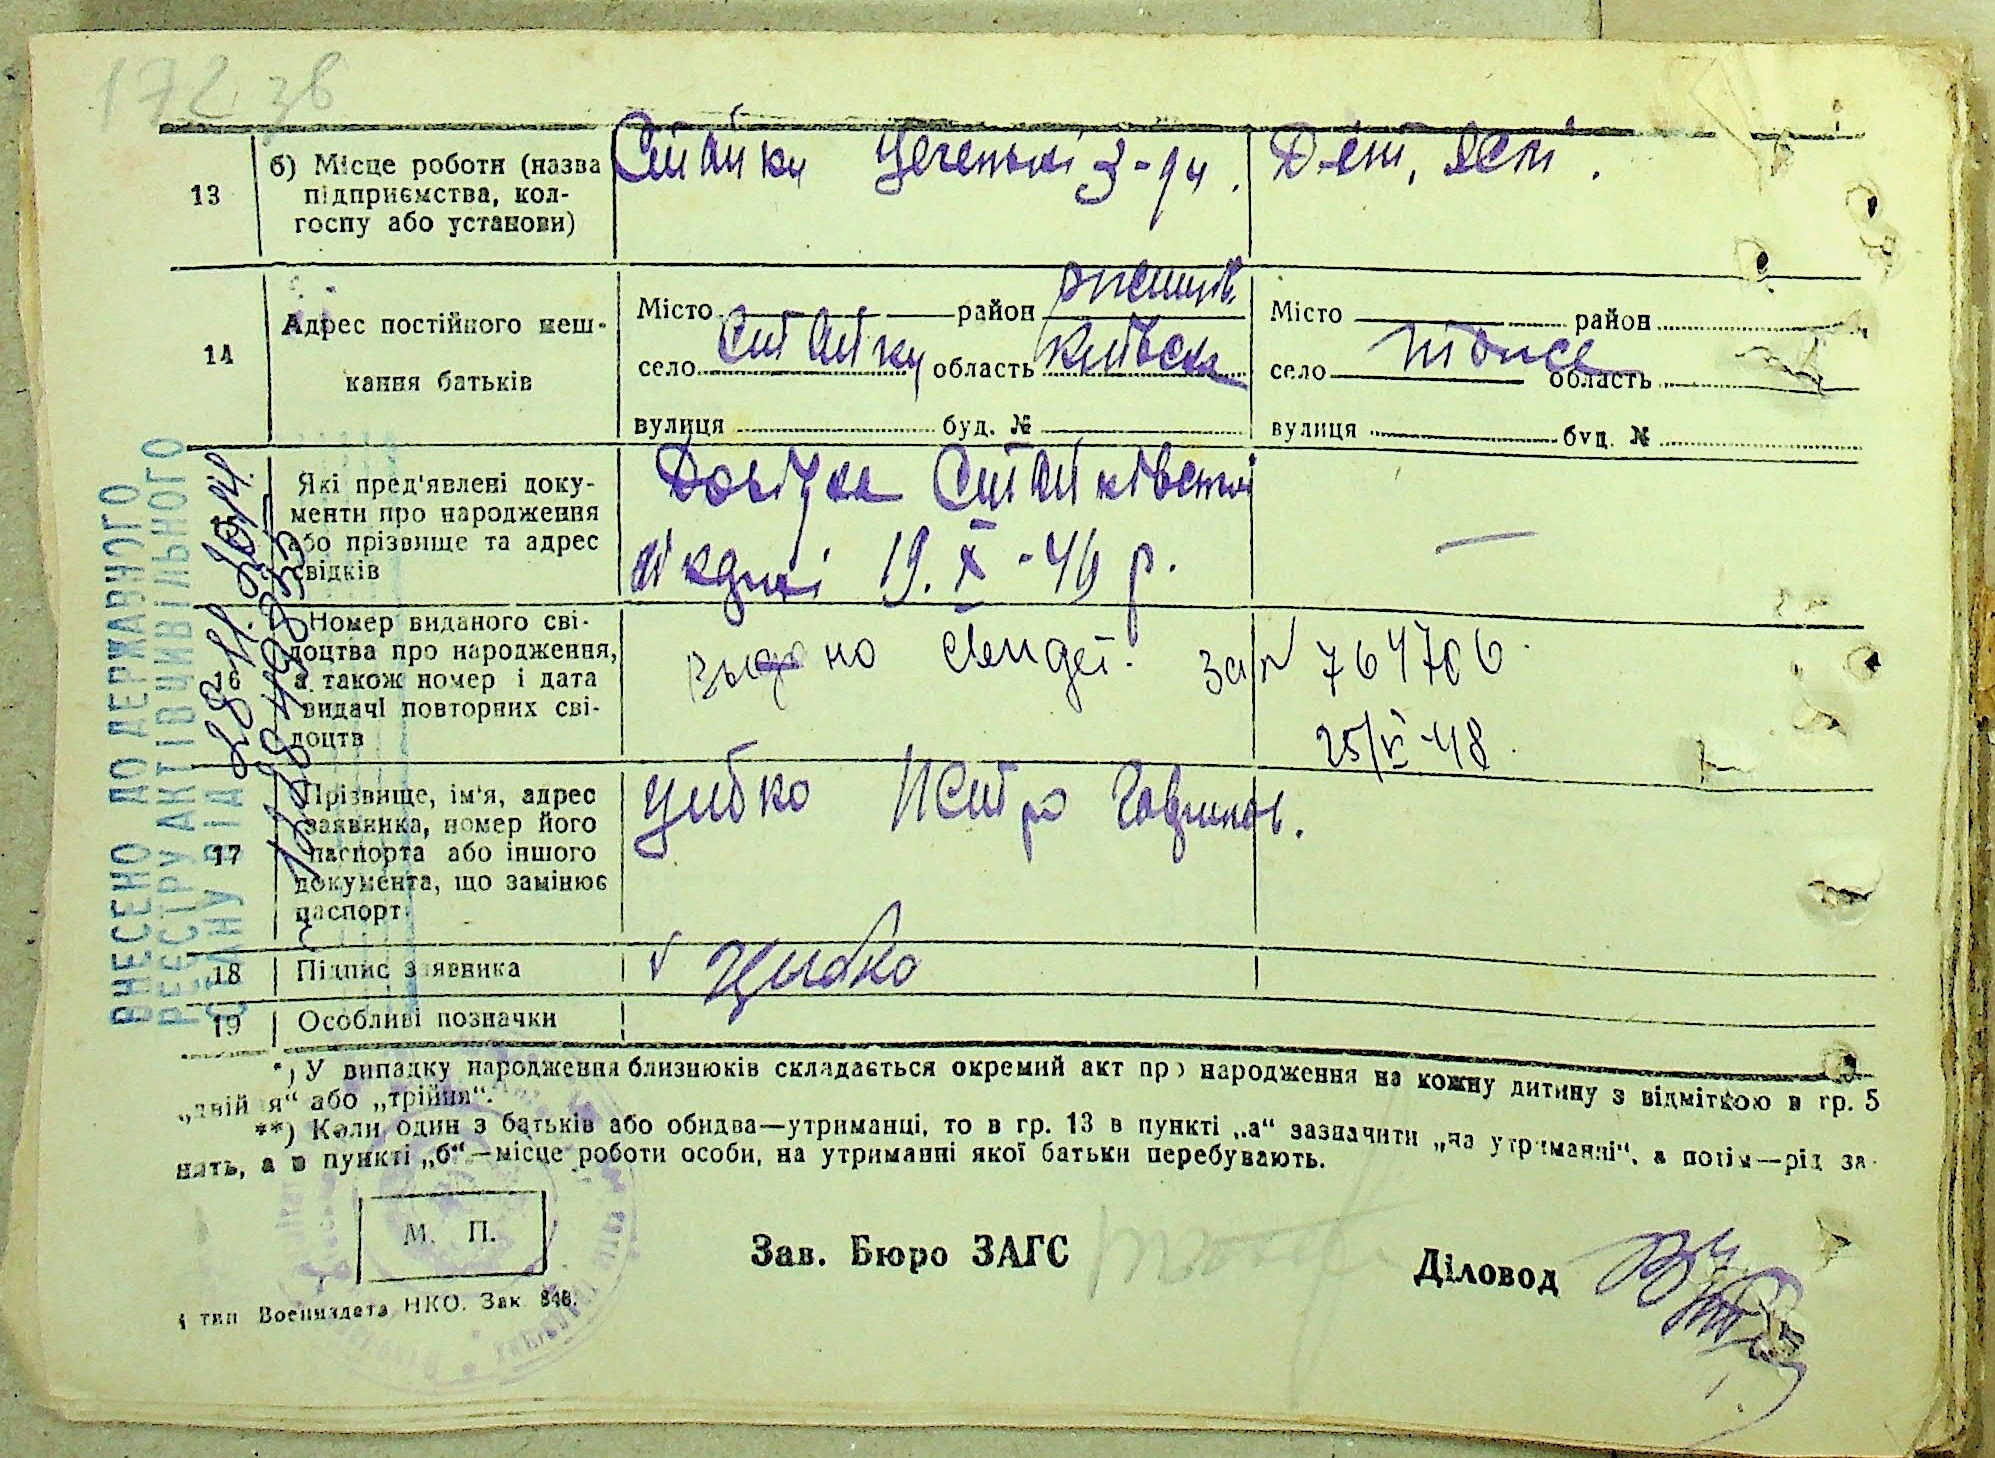 172 зв
13
б) Місце роботи (назва
підприємства, кол-
госпу або установи)
Стайки Цегельні З-ди.
Деті, Яслі.
14
Адрес постійного меш-
кання батьків
Місто район Ржищів
село Стайки область Київська
вулиця буд. №
Місто район
село область
вулиця буд. №
Які пред'явлені доку-
менти про народження
або прізвище та адрес
свідків
Довідка Стайківської
19. X - 46 р.
—
16
Номер виданого сві-
доцтва про народження,
а також номер і дата
видачі повторних сві-
доцтв
выдано свидет. за № 764706
25/VI-48
17
Прізвище, ім'я, адрес
заявника, номер його
паспорта або іншого
документа, що замінює
паспорт
Цибко Петро Гаврилов.
18
Підпис заявника
v Цыбко
19
Особливі позначки
ВНЕСЕНО ДО ДЕРЖАВНОГО
РЕЄСТРУ АКТІВ ЦИВІЛЬНОГО
СТАНУ ВІД
*) У випадку народження близнюків складається окремий акт про народження на кожну дитину з відміткою в гр. 5
„двійня“ або „трійня“.
**) Коли один з батьків або обидва—утриманці, то в гр. 13 в пункті „а“ зазначити „на утриманні“, а потім—рід за-
нять, а в пункті „б“—місце роботи особи, на утриманні якої батьки перебувають.
М. П.
Зав. Бюро ЗАГС
Діловод
тип Воениздата НКО. Зак 846.